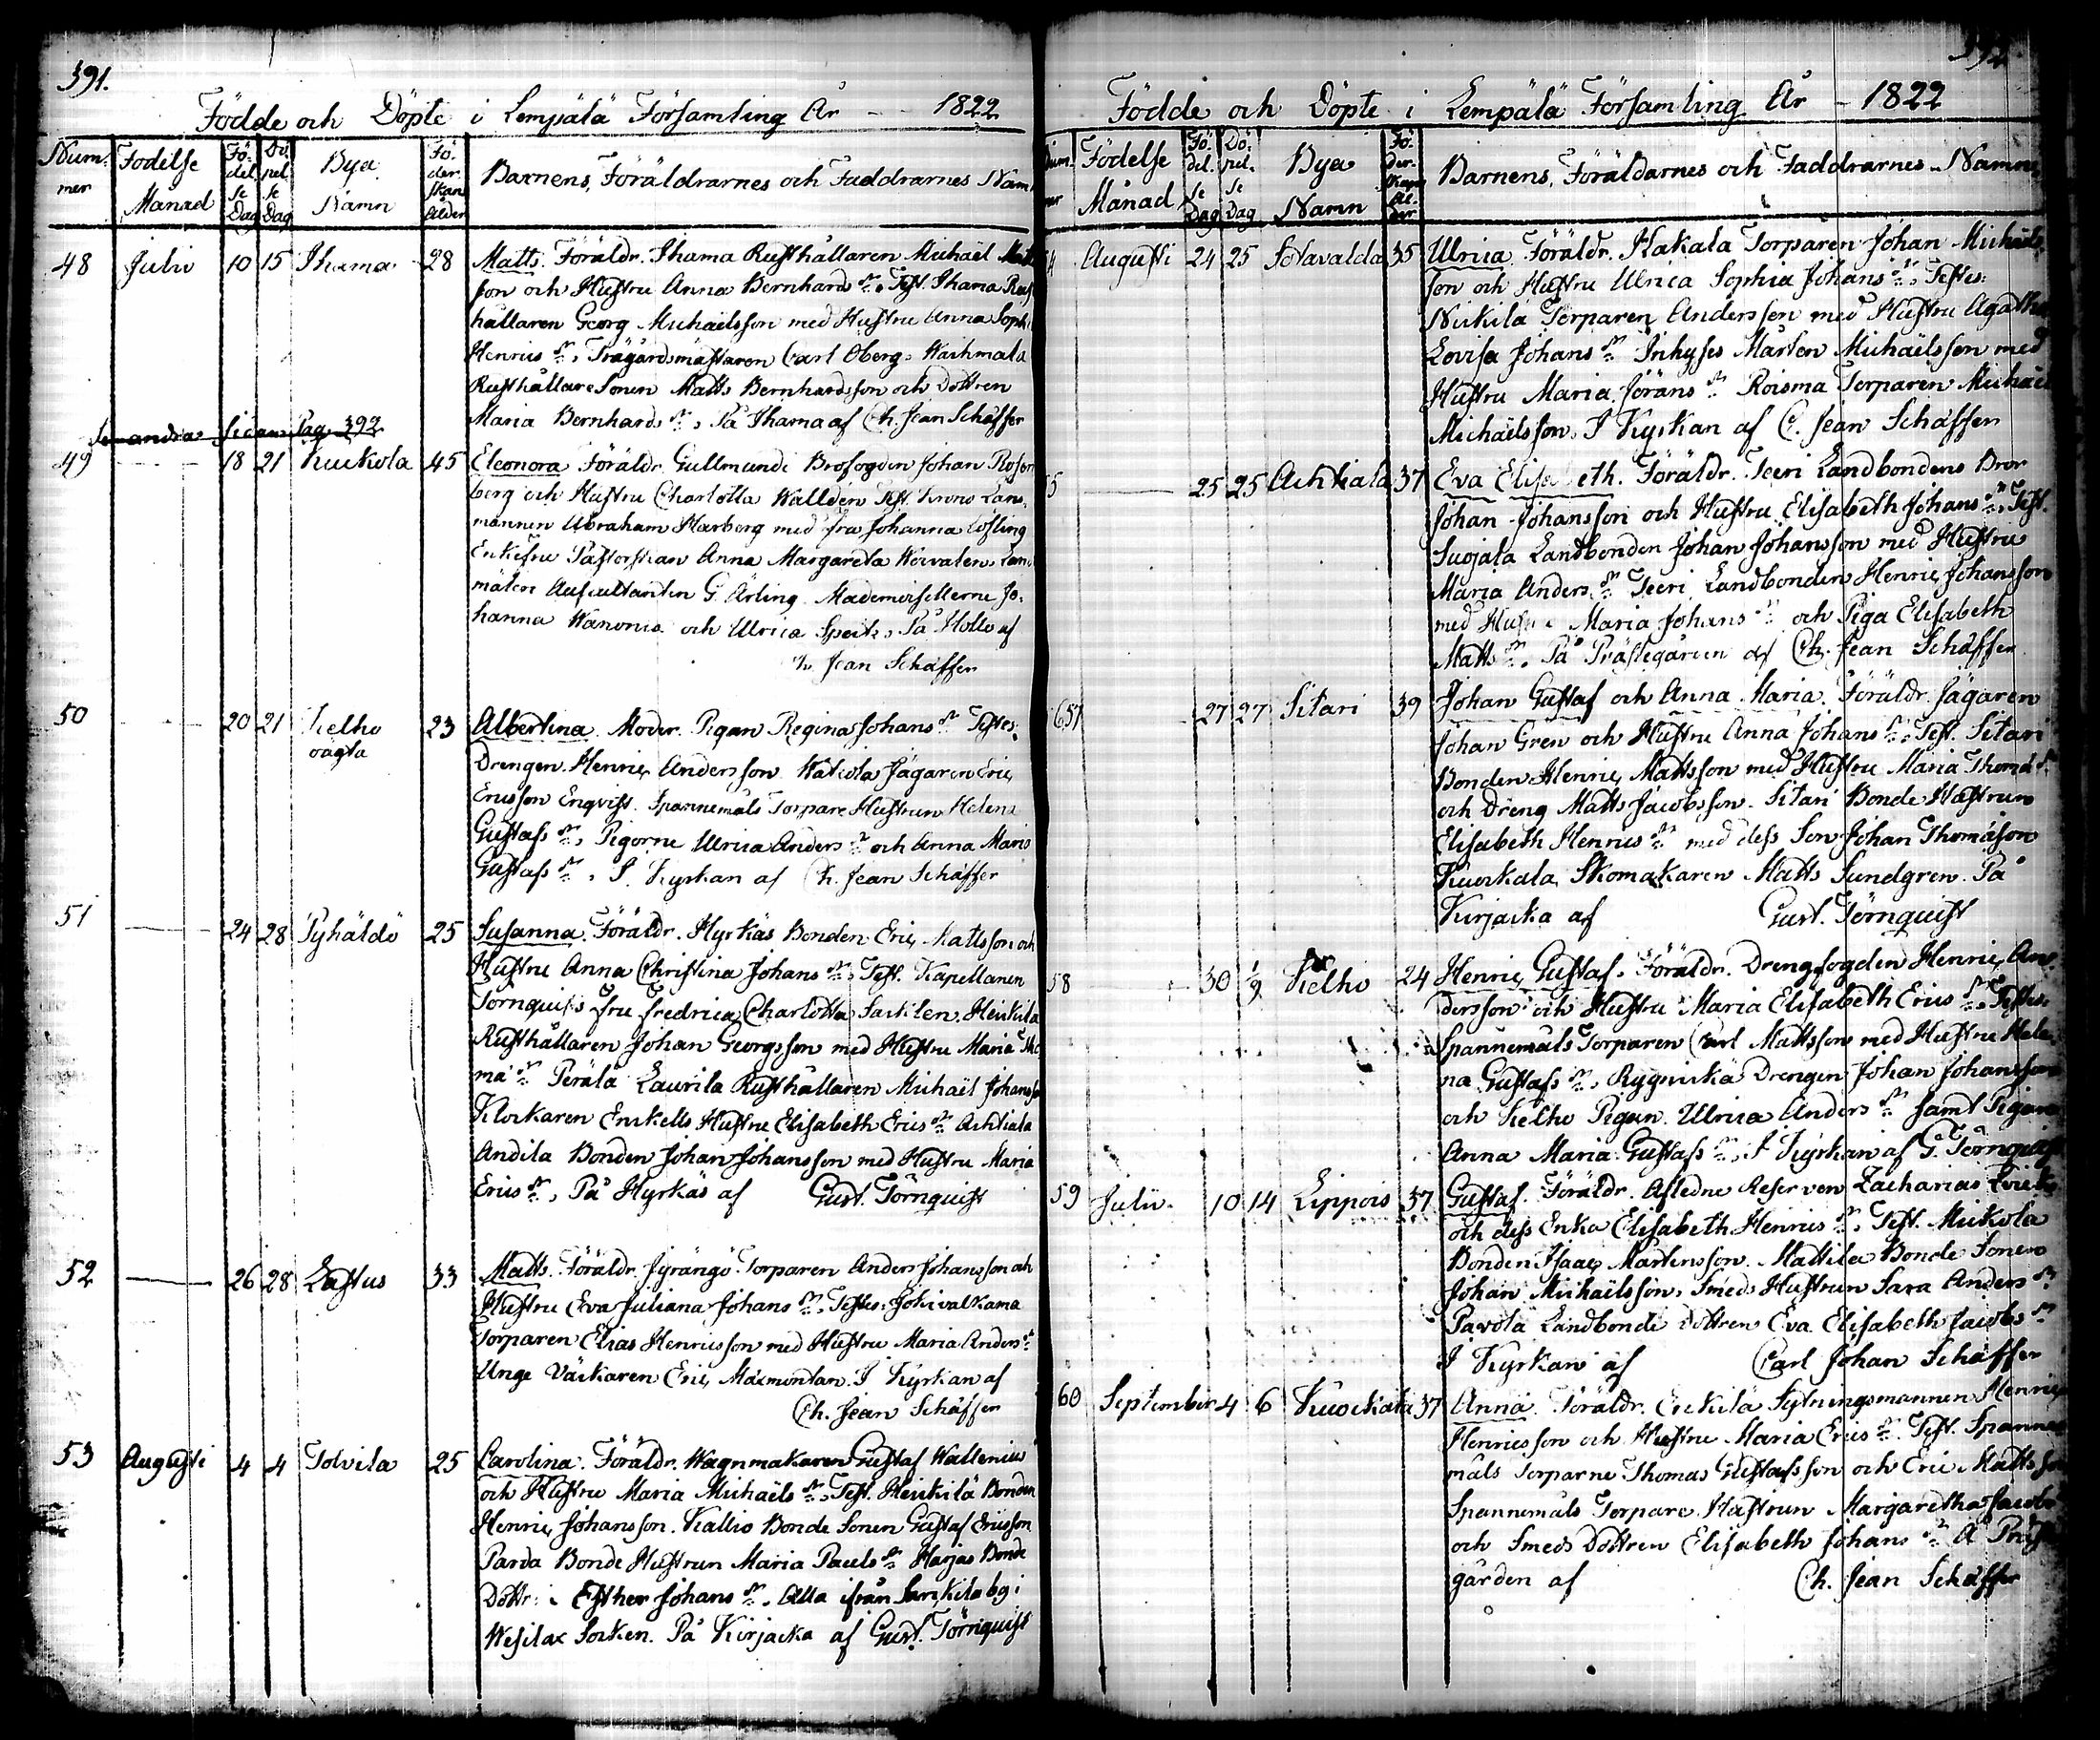 391.
Födde och Döpte i Lempälä Församling År - - 1822
Num:mer Födelse Månad Födelse Dag Döpelse Dag Bya Namn Föderskans ålder Barnens, Föräldrarnes och Faddrarnes Nam
48 Julii 10 15 Ihama 28 Matts. Föräldr. Ihama Rusthållaren Michaël Mats
son och Hustru Anna Bernhards dr. Test. Ihama Rust
hållaren Georg Michaëlsson med Hustru Anna Soph
Henrics dr. Trägårdsmästaren Carl Öberg.
Rusthållare Sonen Matts Bernhardsson och Dottren
Maria Bernhards dr. På Ihama af Ch. Jean Schäffer
Se andra sidan Pag. 392
49 — 18 21 Kuckola 45 Eleonora Föräldr. Gullmundi Brofogden Johan Rosen
berg och Hustru Charlotta Walldén Test. Krono Läns
mannen Abraham Harberg med fru Johanna Löfling
Enkefru Pastorskan Anna Margareta Lan
mäteri Auscultanten G. Ärling. Mademoisellerne Jo
hanna och Ulrica På Hollo af
Ch. Jean Schäffer
50 — 20 21 Kelho oägta 23 Albertina. Moder. Pigan Regina Johans dr. Testes.
Drengen Henric Andersson Jägaren Eric
Ericsson Enqvist. Spannemåls Torpare Hustrun Helena
Gustafs dr. Pigorne Ulrica Anders dr. och Anna Maria
Gustafs dr. I Kyrkan af Ch. Jean Schäffer
51 — 24 28 Pyhäldö 25 Susanna. Föräldr. Hyrkäs Bonden Eric Mattsson och
Hustru Anna Christina Johans dr. Test. Kapellanen
Törnquists fru Fredrica Charlotta Heickilä
Rusthållaren Johan Georgsson med Hustru Maria Tho
mä dr. Perälä Laurila Rusthållaren Michaël Johansso
Klockaren Enckells Hustru Elisabeth Erics dr. Achtiala
Andila Bonden Johan Johansson med Hustru Maria
Erics dr. På Hyrkäs af Gust. Törnquist
52 — 26 28 Lastus 33 Matts. Föräldr. Jyrängö Torparen Anders Johansson och
Hustru Eva Juliana Johans dr. Testes: Johivalkama
Torparen Elias Henricsson med Hustru Maria Anders dr
Unge Eric I Kyrkan af
Ch. Jean Schäffer
53 Augusti 4 4 Tolvila 25 Carolina. Föräldr. Wagnmakaren Gustaf Wallenius
och Hustru Maria Michaëls dr. Test. Heickilä Bonden
Henric Johansson. Kallio Bonde Sonen Gustaf Ericsson
Parda Bonde Hustrun Maria Pauls dr. Harjas Bonde
Dottr: Esther Johans dr. Alla ifrån by i
Wesilax Socken. På Kirjacka af Gust. Törnquist
392.
Födde och Döpte i Lempälä Församling År - 1822
Num:mer Födelse Månad Födelse Dag Döpelse Dag Bya Namn Föderskans Ålder Barnens, Föräldarnes och Faddrarnes Namn
54 Augusti 24 25 Sotavalda 35 Ulrica. Föräldr. Kakala Torparen Johan Michaels
son och Hustru Ulrica Sophia Johans dr. Testes:
Nickilä Torparen Andersson med Hustru Agatha
Lovisa Johans dr. Inhyses Mårten Michaëlsson med
Hustru Maria Jörans dr. Roisma Torparen Michaël
Michaëlsson. I Kyrkan af C. Jean Schäffer
55 — 25 25 Achtiala 37 Eva Elisabeth. Föräldr. Teeri Landbondens Bror
Johan Johansson och Hustru Elisabeth Johans dr. Test.
Suojala Landbonden Johan Johansson med Hustru
Maria Anders dr. Teeri Landbonden Henric Johansson
med Hustru Maria Johans dr. och Piga Elisabeth
Matts dr. På Prästegården af Ch. Jean Schäffer
56 57 — 27 27 Sitari 39 Johan Gustaf och Anna Maria. Föräldr. Jägaren
Johan Gren och Hustru Anna Johans dr. Test. Sitari
Bonden Henric Mattsson med Hustru Maria Thomä dr.
och Dreng Matts Jacobsson. Sitari Bonde Hustrun
Elisabeth Henrics dr. med dess Son Johan Thomasson
Kuockala Skomakaren Matts Sundgren. På
Kirjacka af Gust. Törnquist
58 — 30 1/9 Kelho 24 Henric Gustaf. Föräldr. Drengfogden Henric An
dersson och Hustru Maria Elisabeth Erics dr. Testes.
Spannemåls Torparen Carl Mattsson med Hustru Hele
na Gustafs dr. Drengen Johan Johansson
och Kelho Pigan Ulrica Anders dr. samt Pigan
Anna Maria Gustafs dr. I Kyrkan af G. Törnquist
59 Julii. 10 14 Lippois 37 Gustaf. Föräldr. Afledne Reserven Zacharias
och dess Enka Elisabeth Henrics dr. Test. Mickola
Bonden Isaac Mårtensson. Mattila Bonde Sonen
Johan Michaëlsson. Smeds Hustrun Sara Anders dr
Pavola Landbonde Dottren Eva Elisabeth Jacobs dr
I Kyrkan af Carl Johan Schäffer
60 September 4 6 Kuockala 37 Anna. Föräldr. Erickilä Sytningsmannen Henric
Henricsson och Hustru Maria Erics dr. Test. Spanne
måls Torparne Thomas Gustafsson och Eric Mattsson
Spannemåls Torpare Hustrun Margaretha Jacobs
och Smeds Dottren Elisabeth Johans dr. Å Präste
gården af Ch. Jean Schäffer